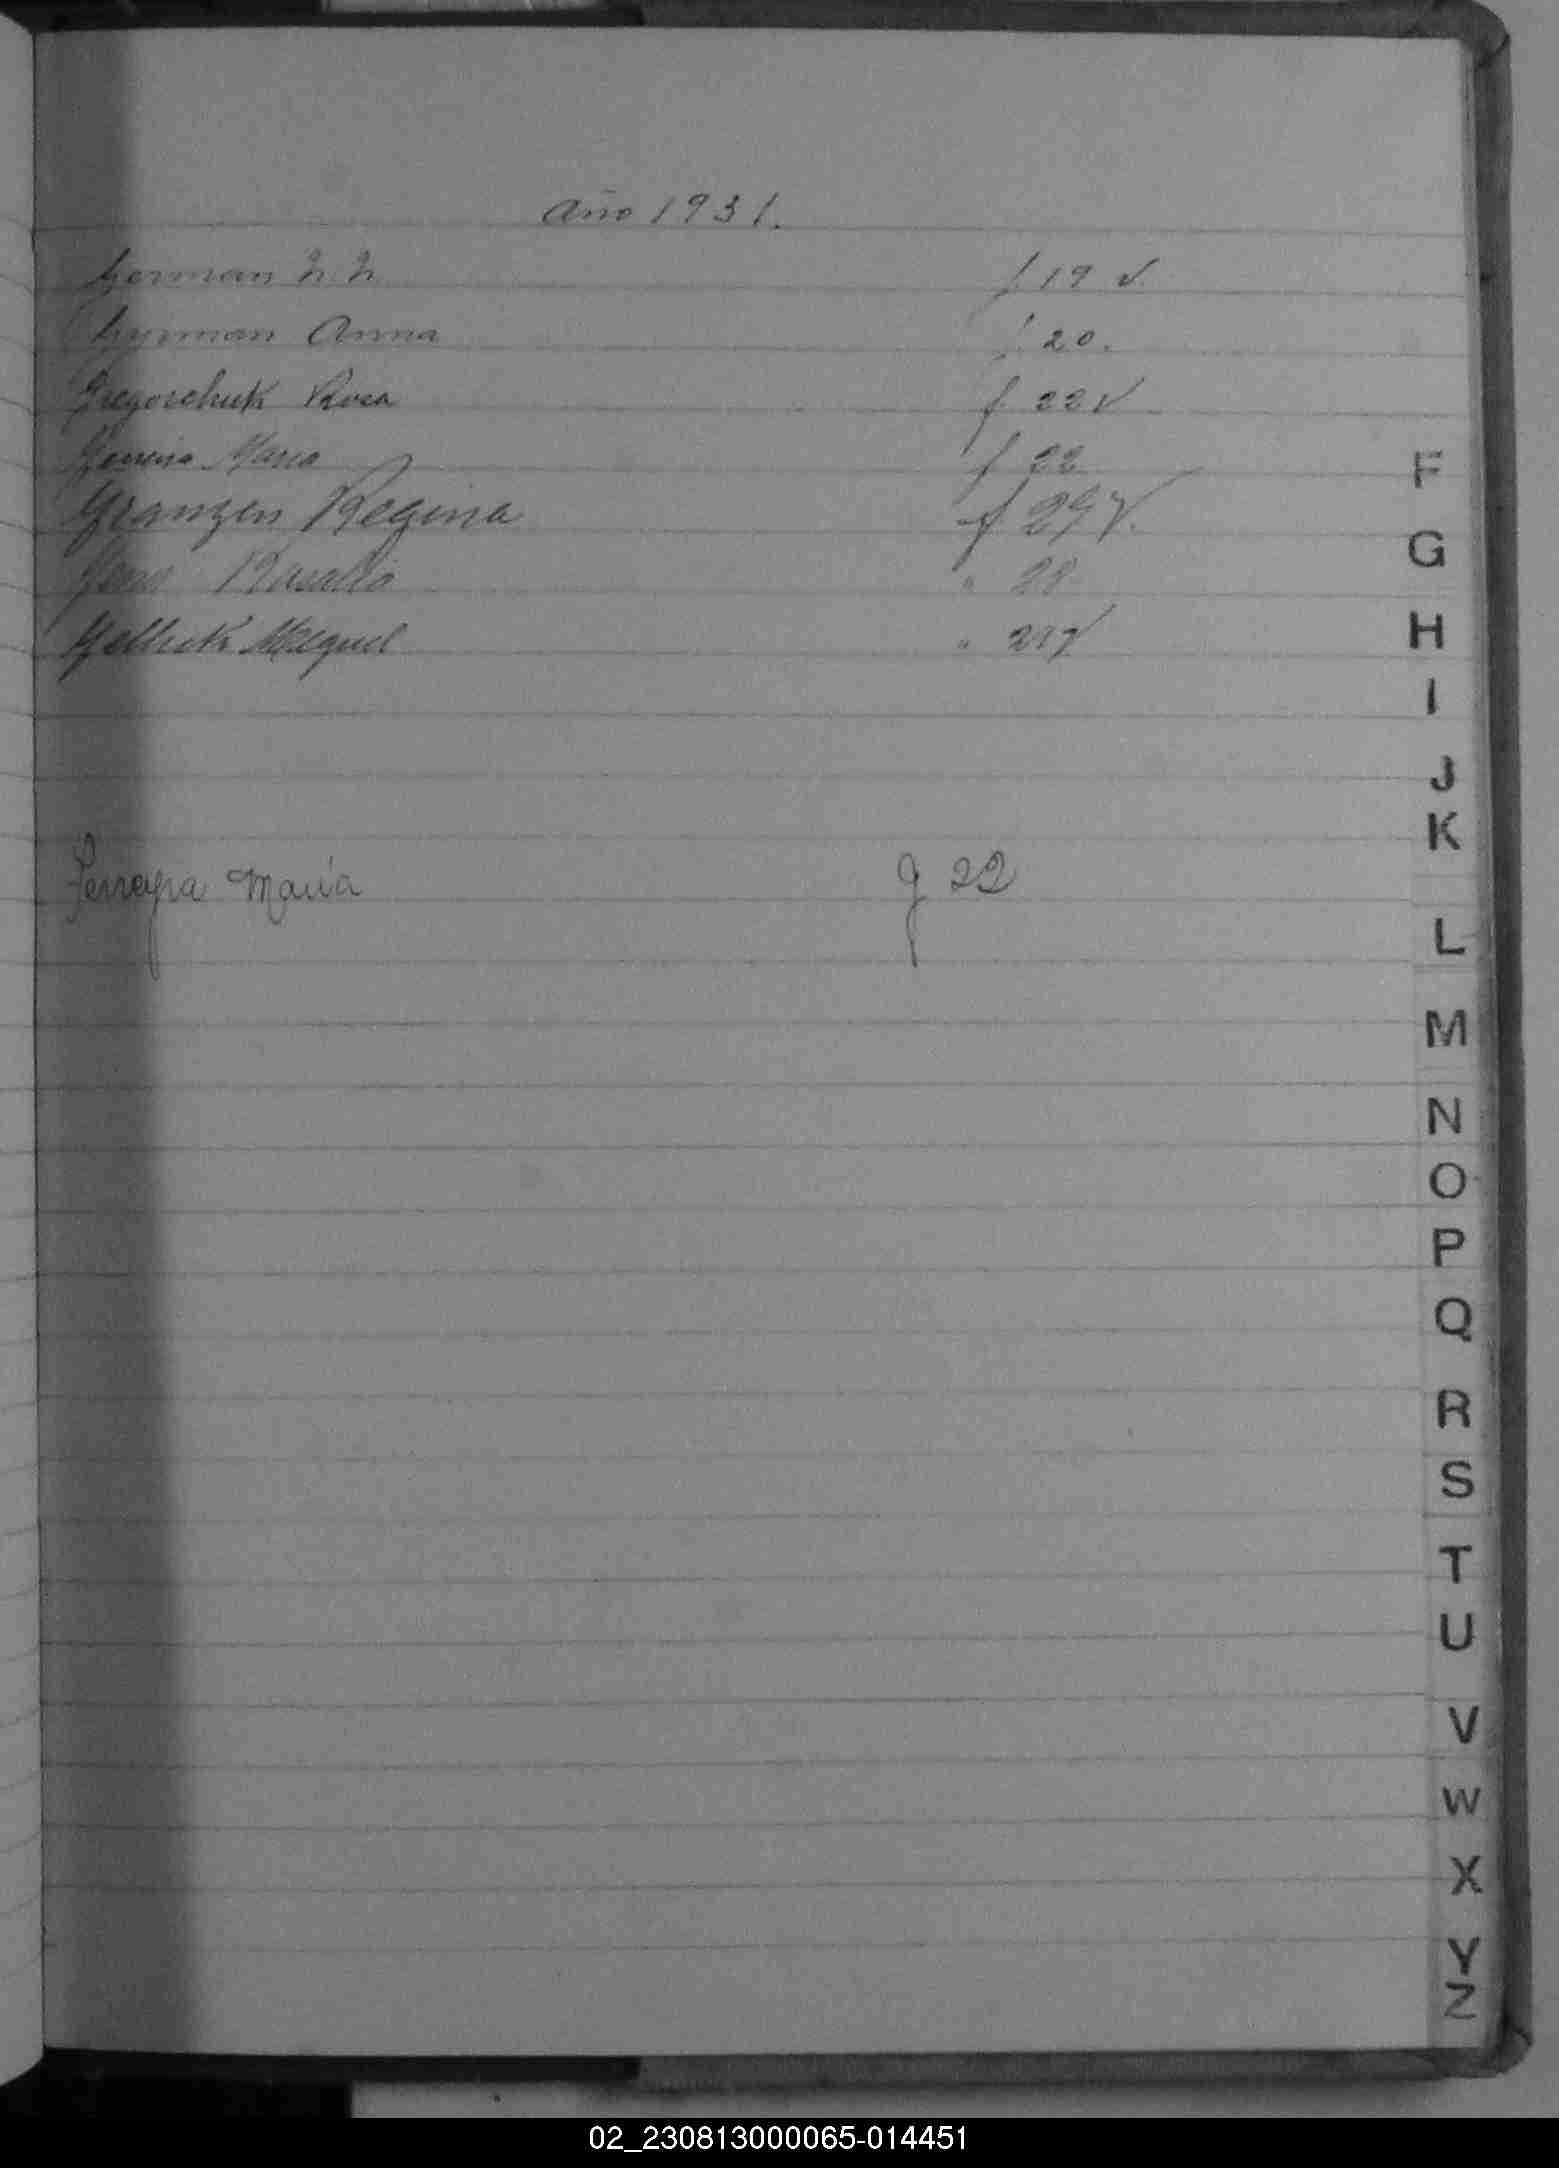 Año 1931.
German N. N. f 19 v.
German Anna f 20.
Gregorchuk Rosa f 22 v
Maria f 22
Granzen Regina f 27 v.
Rosalia " 28
Miguel "
Ferreyra Maria f 22
F
G
H
I
J
K
L
M
N
O
P
Q
R
S
T
U
V
W
X
Y
Z
02_230813000065-014451